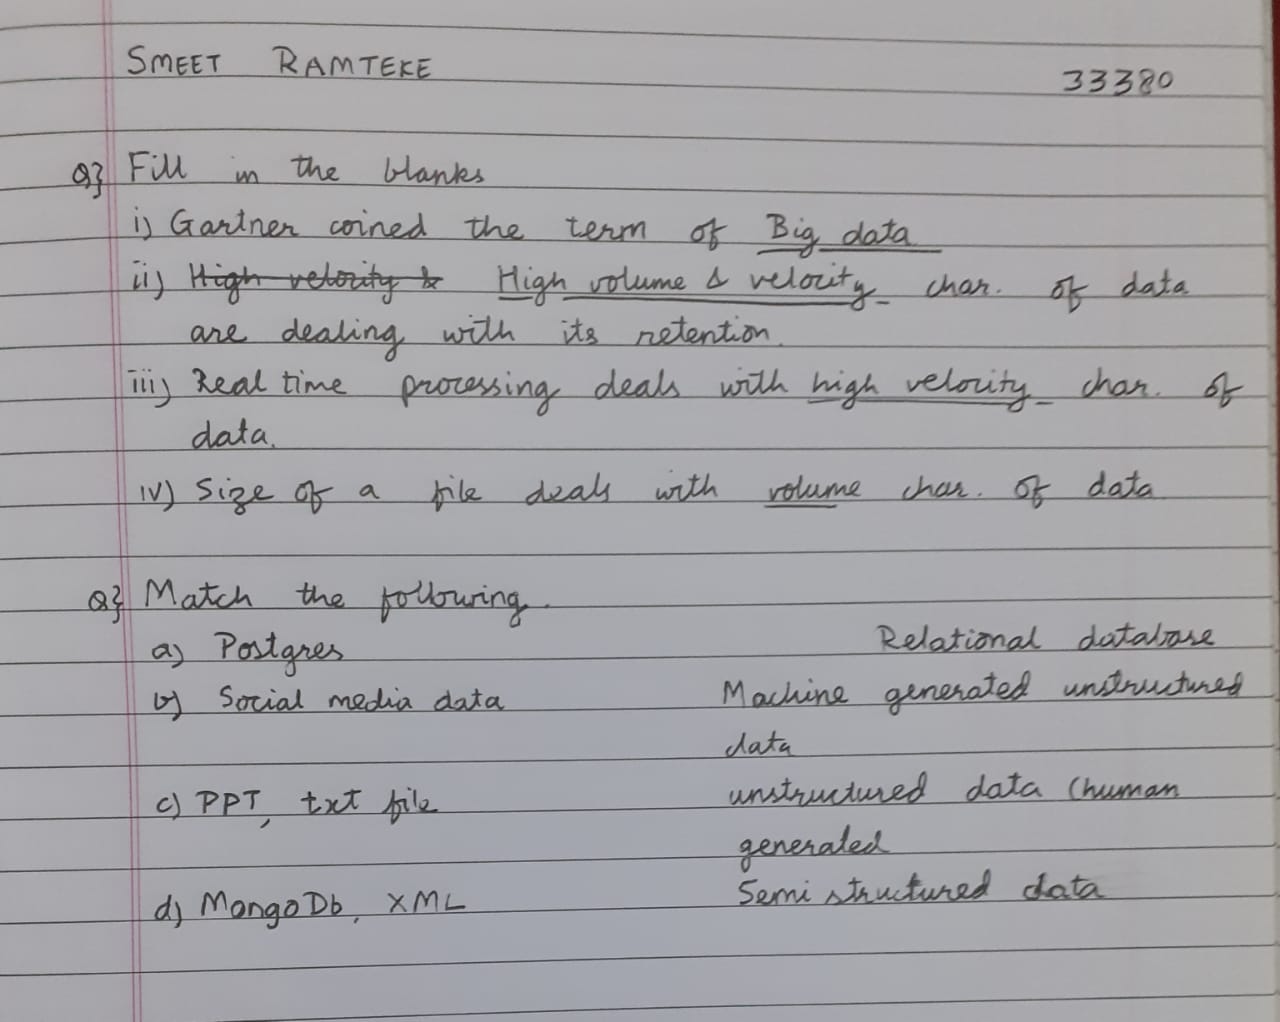 SMEET RAMTEKE 33380
Q} Fill in the blanks
i) Gartner coined the term of Big data
ii) ~~High velocity &~~ High volume & velocity char. of data
are dealing with its retention.
iii) Real time processing deals with high velocity char. of
data.
iv) Size of a file deals with volume char. of data
Q} Match the following.
a) Postgres Relational database
b) Social media data Machine generated unstructured
data
c) PPT, txt file unstructured data (human
generated
d) MongoDb, XML Semi structured data